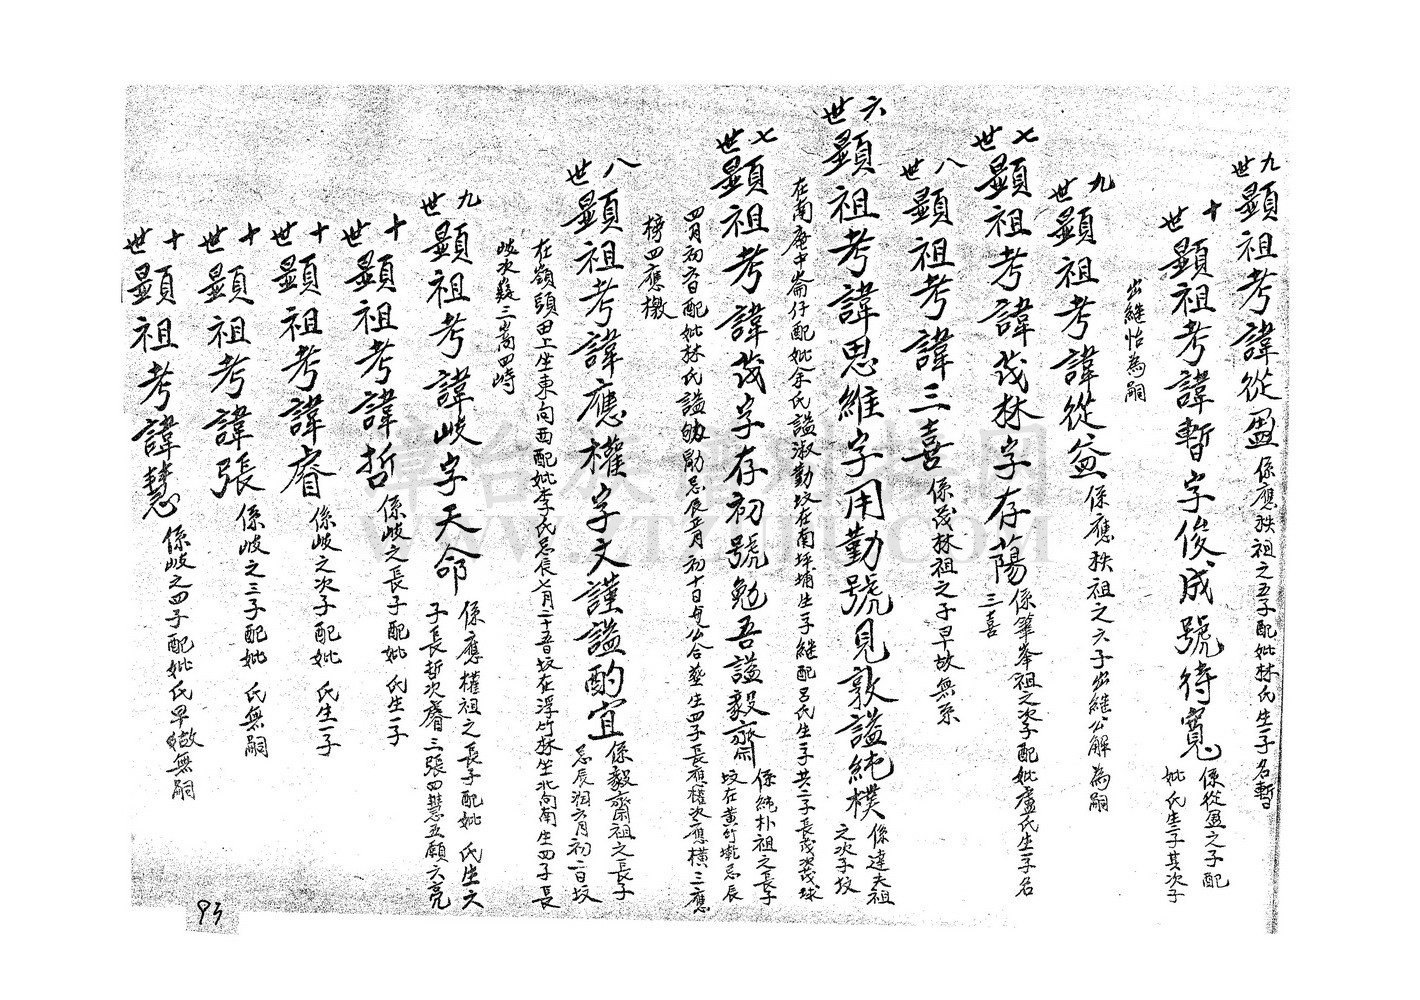 九世顯祖考諱從盈係應秩祖之五子配妣林氏生一子名暫
十世顯祖考諱暫字俊成號待寬係從盈之子配
妣 氏生子其次子
出継怡為嗣
九世顯祖考諱從益係應秩祖之六子出継公解為嗣
七世顯祖考諱茂林字存蔭係肇峯祖之次子配妣盧氏生一子名
三喜
八世顯祖考諱三喜係茂林祖之子早故無系
六世顯祖考諱思維字用勤號見敦謚純樸係達夫祖
之次子坟
在南庵中崙仔配妣余氏謚淑勤坟在南坪埔生一子継配呂氏生一子共二子長茂次茂球
七世顯祖考諱茂字存初號勉吾謚毅齋係純朴祖之長子
坟在黃竹 忌辰
四月初 日配妣林氏謚 勛忌辰正月初十日 公合塟生四子長應權次應橫三應
榜四應檄
八世顯祖考諱應權字文謹謚酌宜係毅齋祖之長子
忌辰潤六月初二日坟
在嶺頭田上坐東向西配妣李氏忌辰七月二十五日坟在浮竹林坐北向南生四子長
岐次嶷三嵩四峙
九世顯祖考諱岐字天命係應權祖之長子配妣 氏生六
子長哲次睿三張四慧五願六亮
十世顯祖考諱哲係岐之長子配妣 氏生一子
十世顯祖考諱睿係岐之次子配妣 氏生一子
十世顯祖考諱張係岐之三子配妣 氏無嗣
十世顯祖考諱慧係岐之四子配妣氏早故無嗣
93
漳台族譜對接网
WWW.ZTZUPU.COM